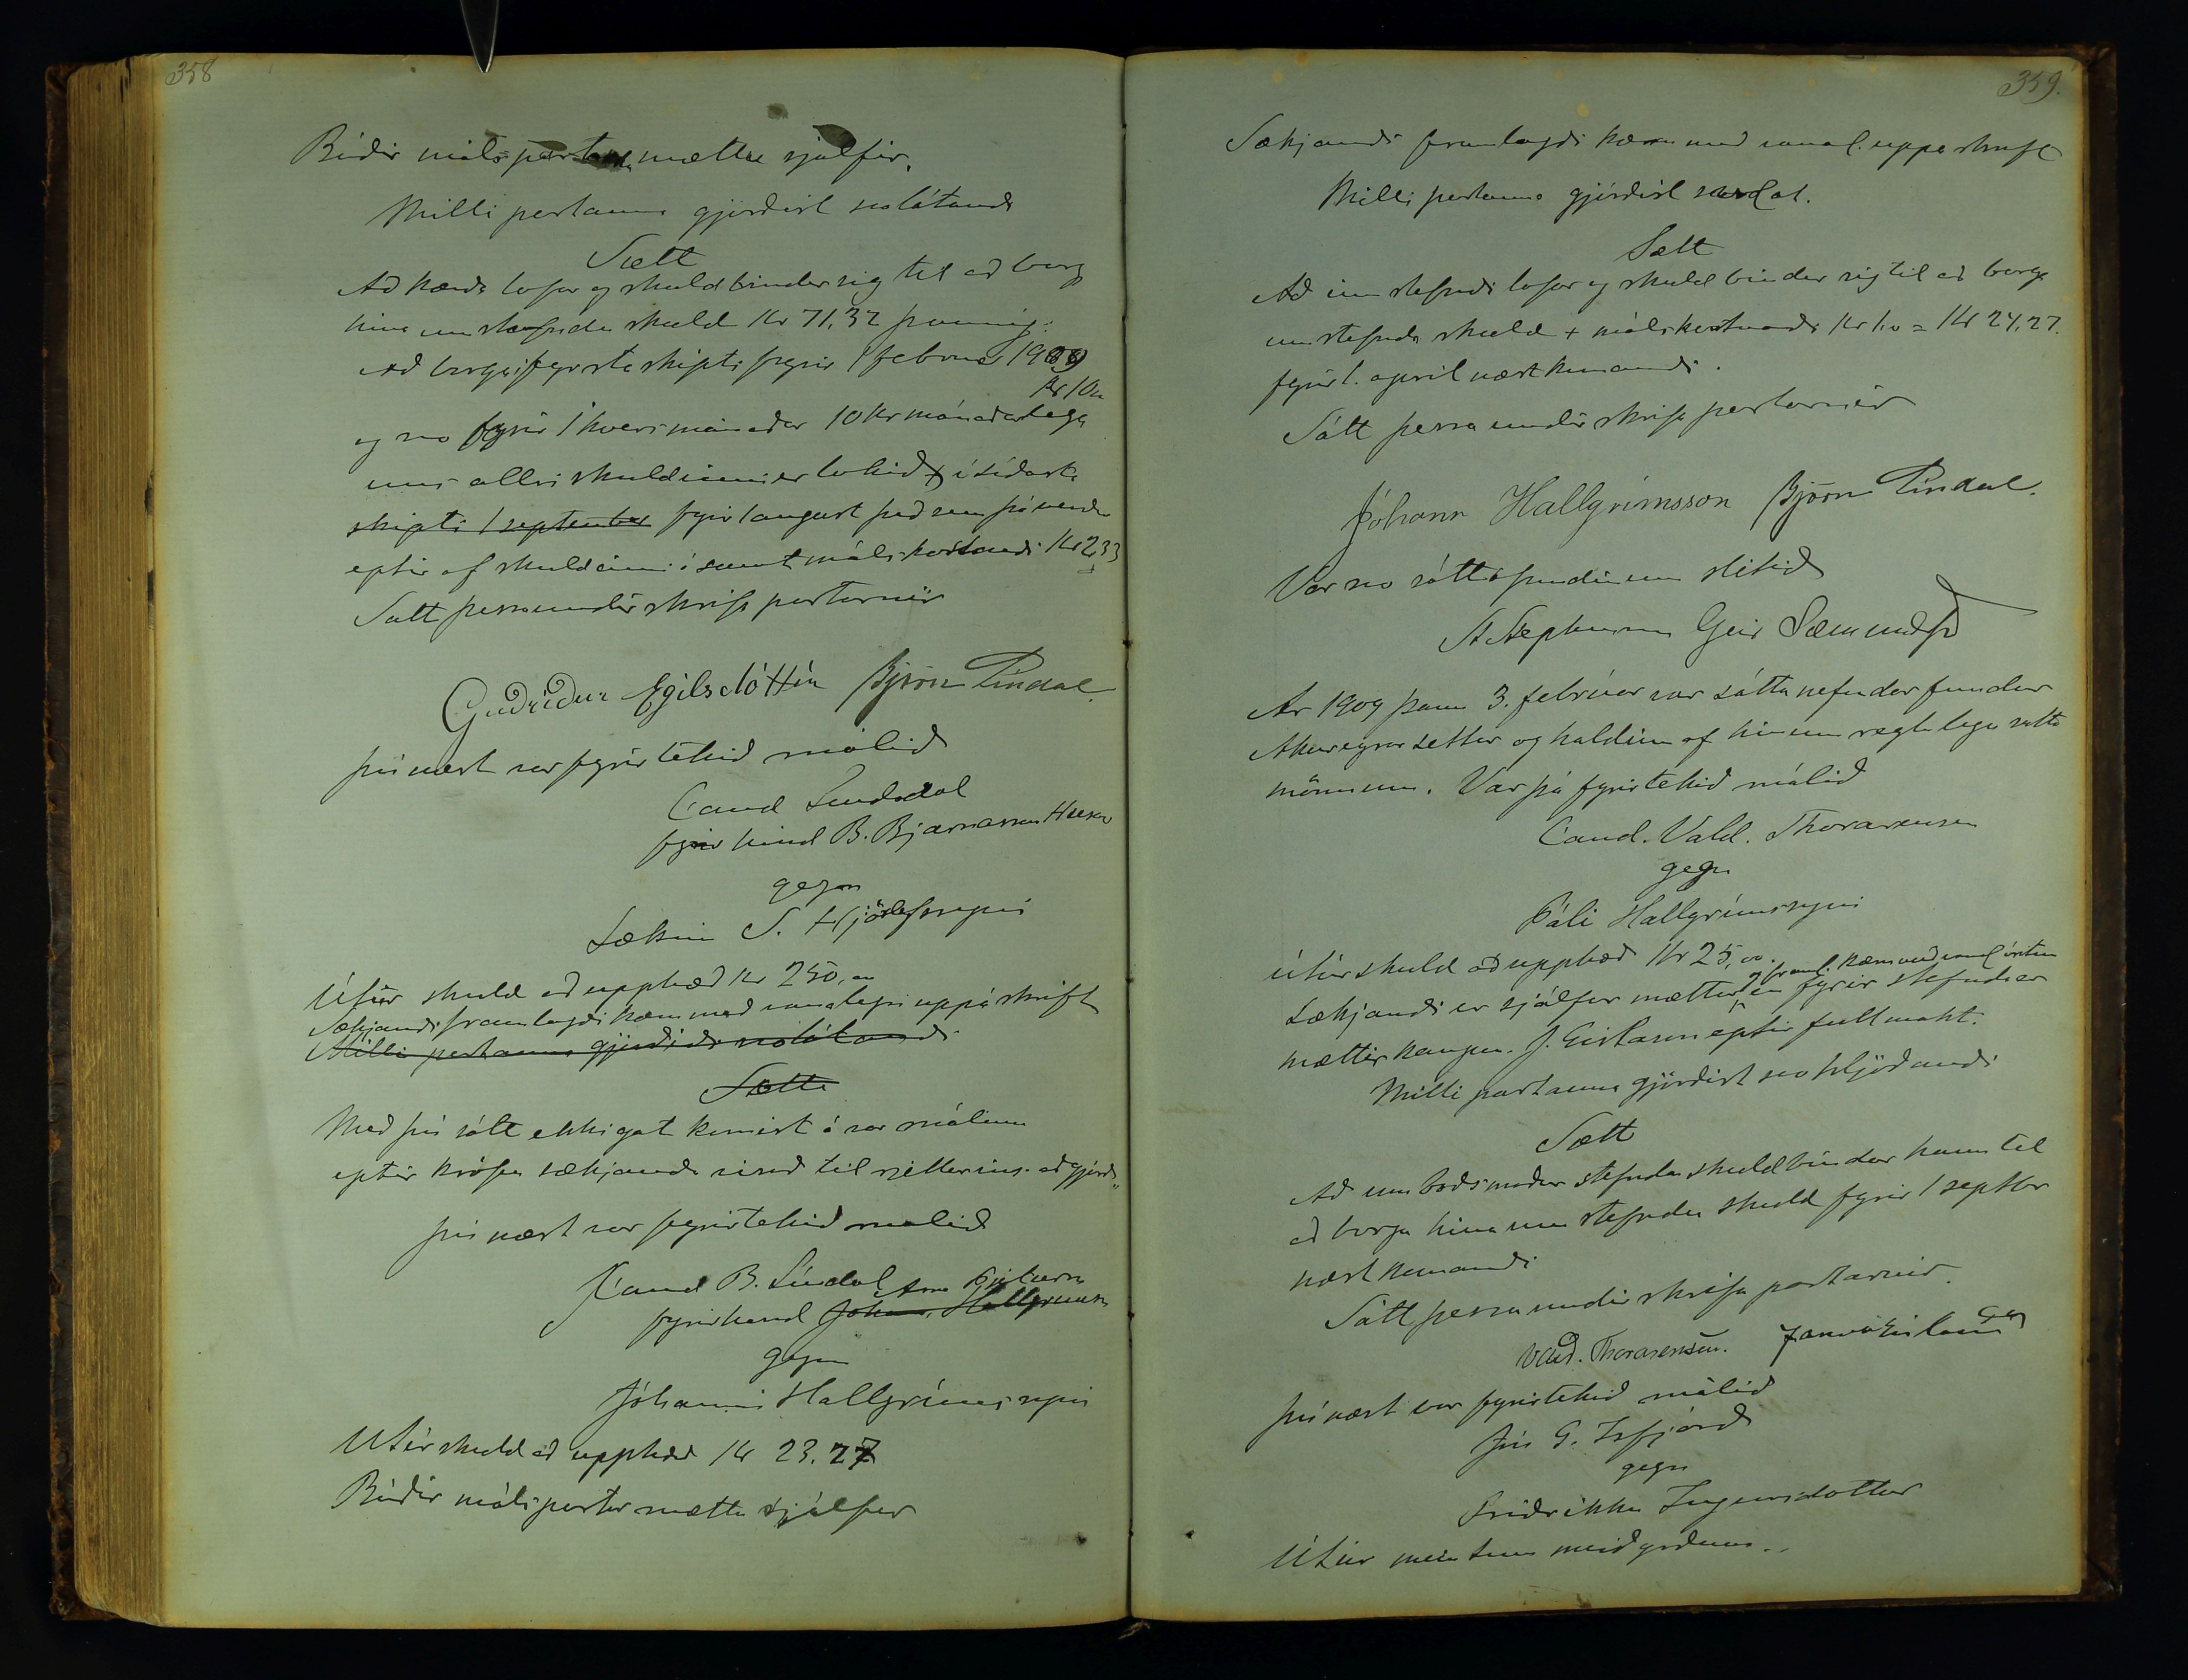 358
Báðir málspartar mættu sjálfir.
Milli partanna gjörðist svolátandi
Sætt
Að kærða lofar og skuldbindur sig til að borga
hina umstefndu skuld Kr 71,32 þannig:
Að borga í fyrsta skipti fyrir 1 febrúar 1909
Kr 10
og svo fyrir 1 hvers mánaðar 10 Kr mánaðarlega
uns allri skuldinni er lokið í síðasta
skipti 1 september fyrir það sem þá verður
eptir af skuldinni ásamt málskostnaði Kr 2,33
Sátt þessa undirskrifa partarnir
Guðríður Egilsdóttir Björn Líndal
því næst var fyrirtekið málið
Cand Líndal
fyrir hönd B. Bjarnason
gegn
Lækni S. Hjörleifssyni
Útúr skuld að upphæð Kr 250,00
Sækjandi framlagði kæru með vanalegri uppáskrift
Milli partanna gjörðist svolátandi
Sætt
Með því sátt ekki gat komist á var málinu
eptir kröfu sækjanda vísað til rjettarins aðgjörða
því næst var fyrirtekið málið
Cand B. Líndal
fyrir hönd Johan. Hallgrímss
gegn
Jóhanni Hallgrímssyni
Utúr skuld að upphæð Kr 23.27
Báðir málspartar mættu sjálfir
359.
Sækjandi framlagði kæru með vanal. uppáskrift
Milli partanna gjörðist svolát.
Sætt
Að inn stefndi lofar og skuldbindur sig til að borga
umstefnda skuld + málskostnað Kr 1.00 = Kr 24,27.
fyrir 1. apríl næstkomandi.
Sátt þessa undirskrifa partarnir
Jóhann Hallgrímsson Björn Líndal.
Var svo sáttafundinum slitið
St Stephensen Geir Sæmundss
Ár 1909 þann 3. febrúar var sáttanefndarfundur
Akureyrar settur og haldinn af hinum reglulegu sátta
mönnum. Var þá fyrirtekið málið
Cand. Vald. Thorarensen
gegn
Páli Hallgrímssyni
Útúr skuld að upphæð Kr 25,00.
og framl. kæru með vanal áritun
Sækjandi er sjálfur mættur en fyrir stefnda er
mættir kaupm. J. Gíslason eptir fullmakt.
Milli partanna gjörðist svo hljóðandi
Sætt
Að umboðsmaður stefnda skuldbindur hann til
að borga hina umstefndu skuld fyrir 1 septbr
næstkomandi
Sátt þessa undirskrifa partarnir.
Vald. Thorarensen. Jónvið Gíslason
því næst var fyrirtekið málið
Jón G. Ísfjörð
gegn
Friðrikku Ingvarsdóttur
Útúr meintum meiðyrðum..